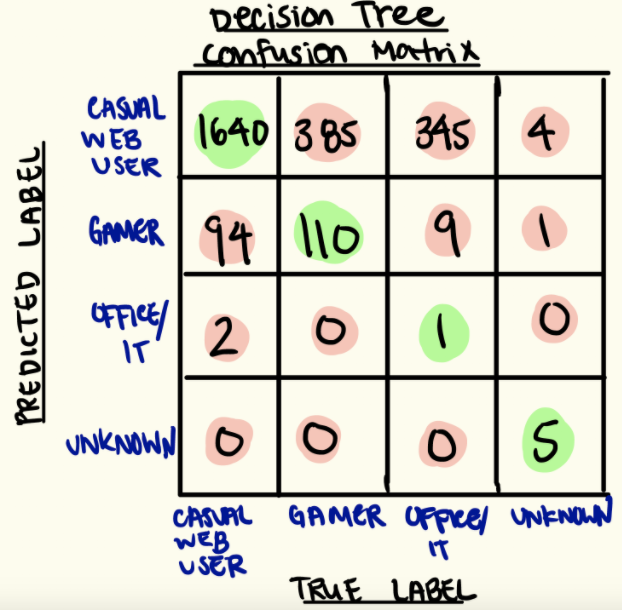 Decision Tree
Confusion Matrix
PREDICTED LABEL
CASUAL
WEB
USER
1640 385 345 4
GAMER
94 110 9 1
OFFICE/
IT
2 0 1 0
UNKNOWN
0 0 0 5
CASUAL
WEB
USER
GAMER
OFFICE/
IT
UNKNOWN
TRUE LABEL